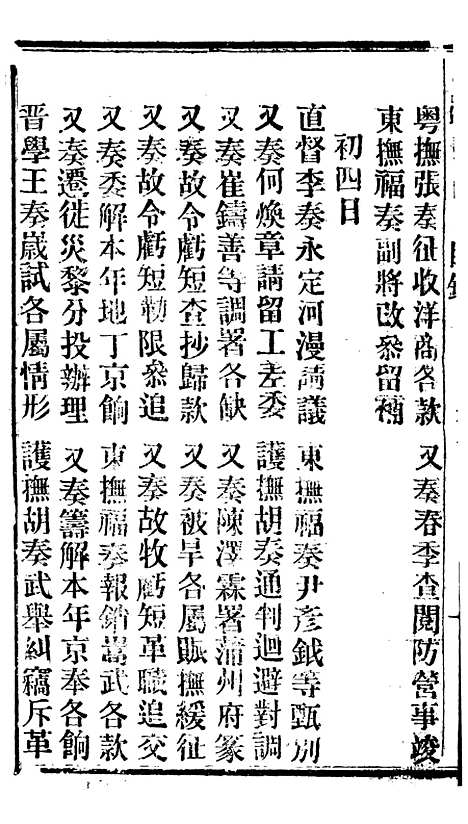 粤撫張奏征收洋商各款　又奏春季查閱防營事竣
東撫福奏副將改叅留補
初四日
直督李奏永定河漫請議　東撫福奏尹彥鉞等甄別
又奏何煥章請留工差委　護撫胡奏通判迴避對調
又奏崔鑄善等調署各缺　又奏陳澤霖署蒲州府篆
又奏故令虧短查抄歸款　又奏被旱各屬賑撫緩征
又奏故令虧短勒限叅追　又奏故牧虧短革職追交
又奏委解本年地丁京餉　東撫福奏報銷嵩武各款
又奏遷徙災黎分投辦理　又奏籌解本年京奉各餉
晋學王奏歲試各屬情形　護撫胡奏武舉糾竊斥革